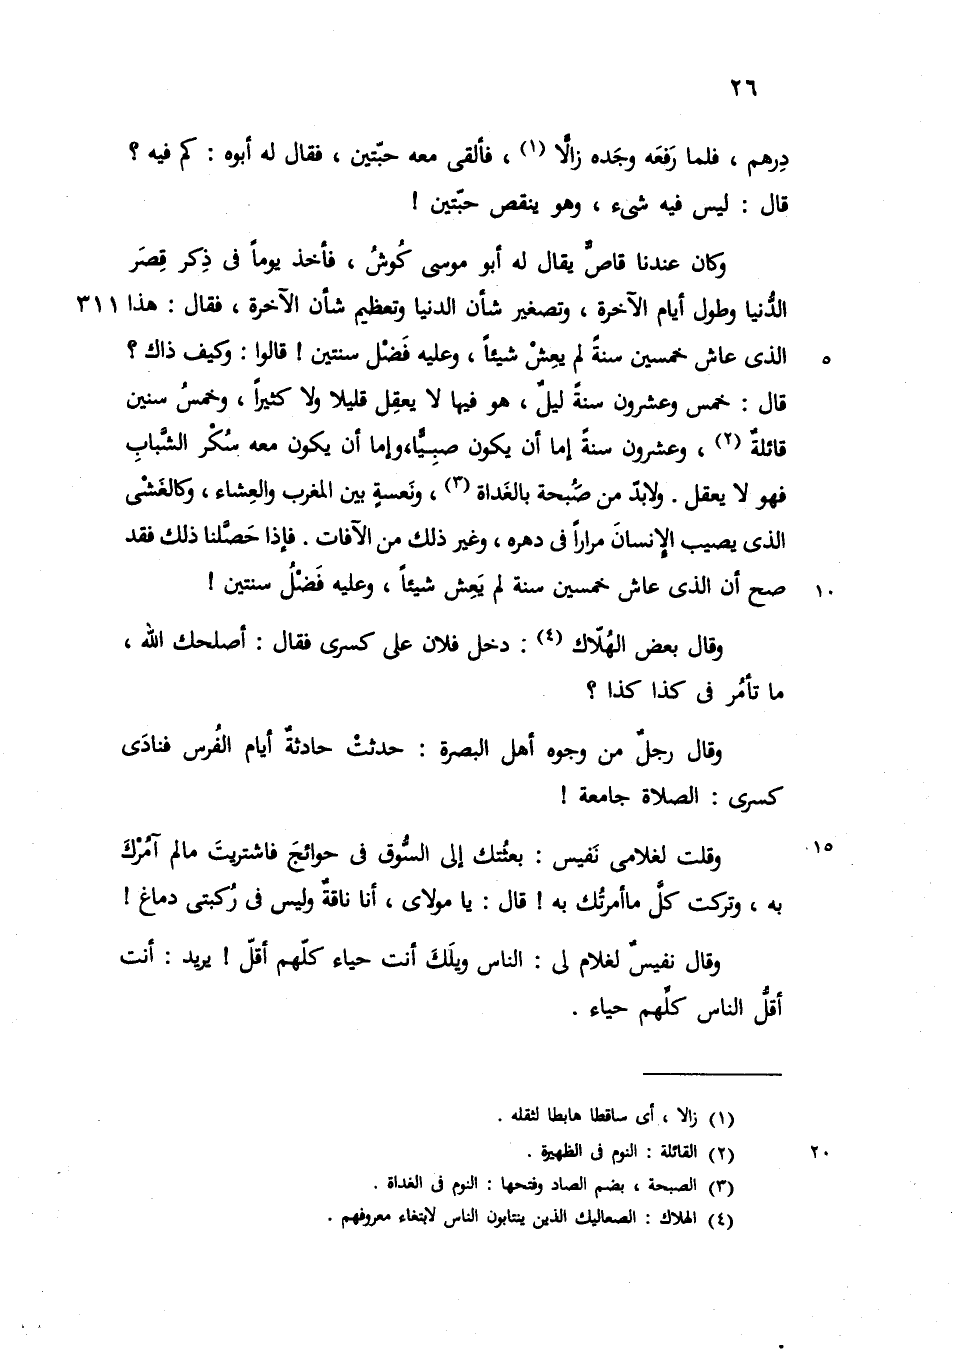 ٢٦
دِرهم ، فلما رَفعَه وجَده زالًّا (١) ، فألقى معه حبّتين ، فقال له أبوه : كم فيه ؟
قال : ليس فيه شىء ، وهو ينقص حبّتين !
وكان عندنا قاصٌّ يقال له أبو موسى كُوشُ ، فأخذ يوماً فى ذِكر قِصَر
الدُّنيا وطول أيام الآخرة ، وتصغير شأن الدنيا وتعظيم شأن الآخرة ، فقال : هذا ٣١١
الذى عاش خمسين سنةً لم يعِشْ شيئاً ، وعليه فَضْل سنتين ! قالوا : وكيف ذاك ؟ ٥
قال : خمس وعشرون سنةً ليلٌ ، هو فيها لا يعقِل قليلا ولا كثيراً ، وخمسُ سنين
قائلةٌ (٢) ، وعشرون سنةً إما أن يكون صبِيًّا، وإما أن يكون معه سُكْر الشَّبابِ
فهو لا يعقل . ولابدّ من صُبحة بالغَداة (٣) ، ونَعسةٍ بين المغرب والعِشاء ، وكالغَشْى
الذى يصيب الإنسانَ مراراً فى دهره ، وغير ذلك من الآفات . فإذا حَصَّلنا ذلك فقد
صح أن الذى عاش خمسين سنة لم يَعِش شيئاً ، وعليه فَضْلُ سنتين ! ١٠
وقال بعض الهُلّاك (٤) : دخل فلان على كسرى فقال : أصلحك الله ،
ما تأمُر فى كذا كذا ؟
وقال رجلٌ من وجوه أهل البصرة : حدثتْ حادثةٌ أيام الفُرس فنادَى
كسرى : الصلاة جامعة !
وقلت لغلامى نَفيس : بعثتك إلى السُّوق فى حوائجَ فاشتريتَ مالم آمُرْكَ ١٥
به ، وتركت كلَّ ماأمرتُك به ! قال : يا مولاى ، أنا ناقةٌ وليس فى رُكبتى دماغ !
وقال نفيسٌ لغلام لى : الناس ويلَكَ أنت حياء كلّهم أقلّ ! يريد : أنت
أقلُّ الناس كلِّهم حياء .
(١) زالا ، أى ساقطا هابطا لثقله .
(٢) القائلة : النوم فى الظهيرة . ٢٠
(٣) الصبحة ، بضم الصاد وفتحها : النوم فى الغداة .
(٤) الهلاك : الصعاليك الذين ينتابون الناس لابتغاء معروفهم .